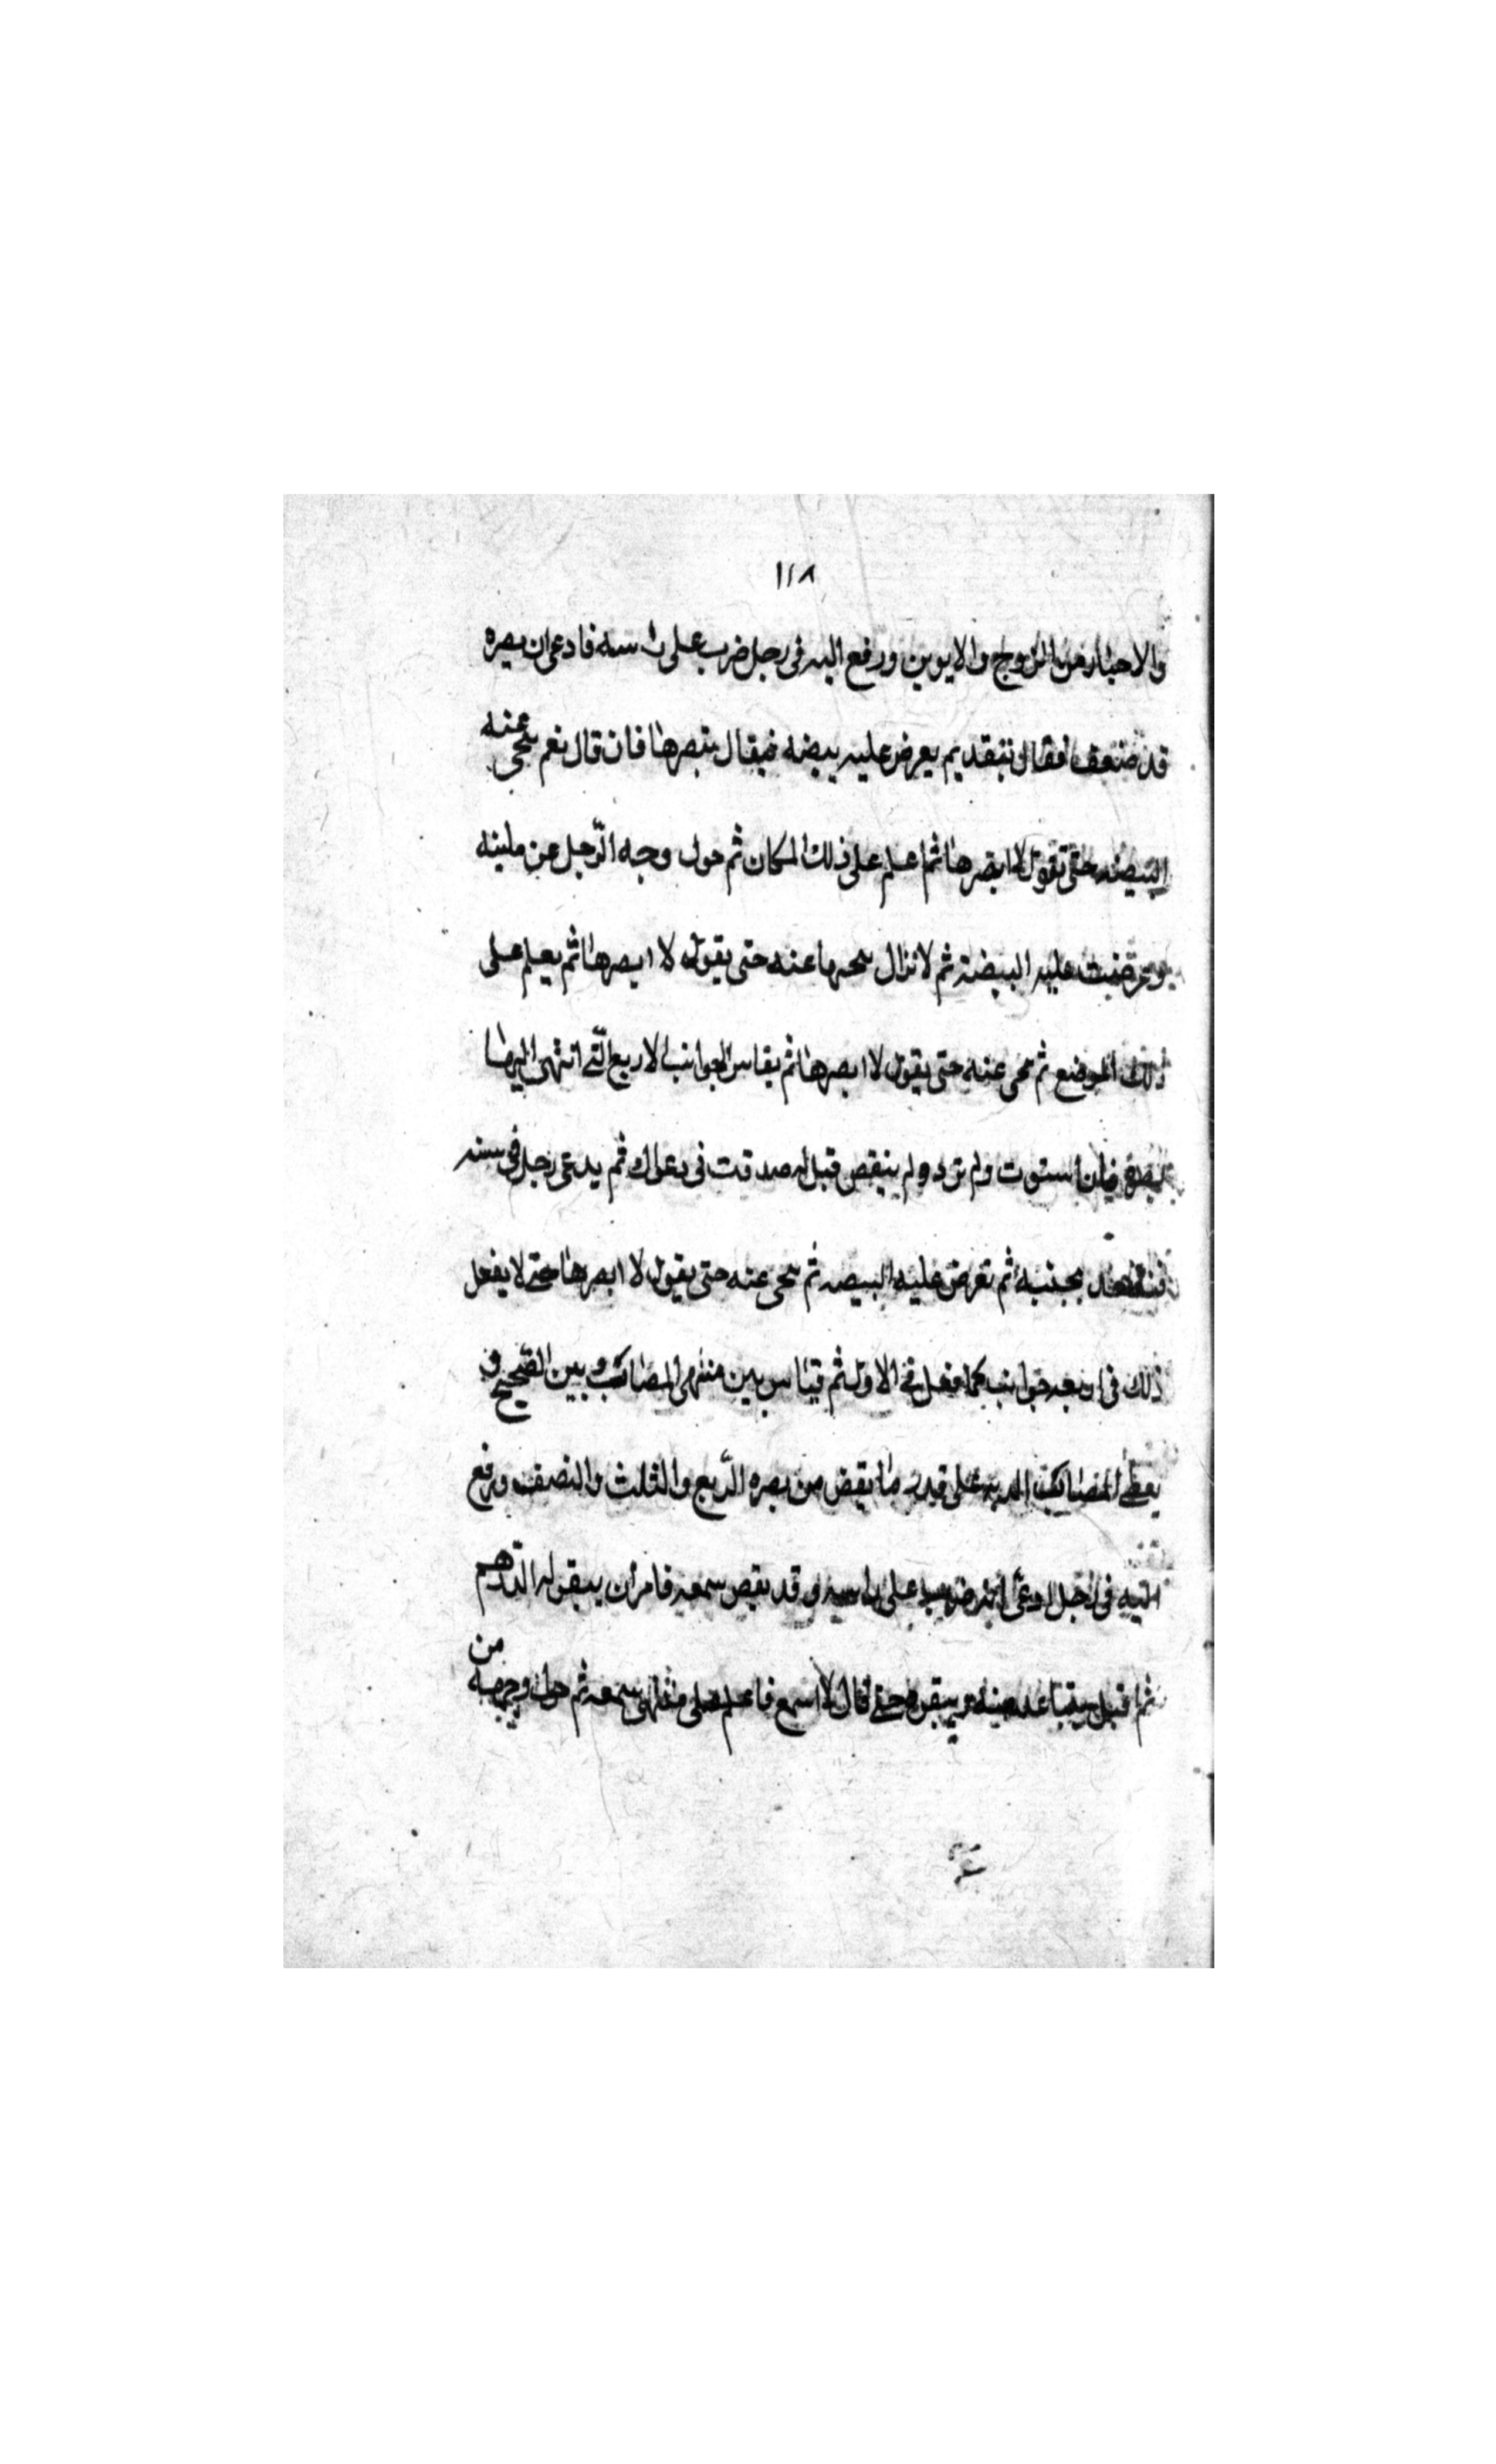 ١٢٨
والاخبار من الزوج والابوين ورفع اليه فى رجل ضرب على راسه فادعى ان بصره
قد ضعف فقال يعرض عليه بيضه فيقال تبصرها فان قال نعم نحى عنه
البيضه حتى تقول لا ابصرها ثم اعلم على ذلك المكان ثم حول وجه الرّجل عن
وعرضت عليه البيضة ثم لا نزال نحيها عنه حتى يقول لا ابصرها ثم يعلم على
ذلك الموضع ثم نحى عنه حتى يقول لا ابصرها ثم يقاس الجوانب الاربع الّتى انتهى اليها
بصره فان استوت ولم تزد ولم ينقص قيل له صدقت فى دعواك ثم يدعى رجل فى سنه
بجنبه ثم تعرض عليه البيضه ثم نحى عنه حتى يقول لا ابصرها حتى لا يفعل
ذلك فى اربعه جوانب كما فعل فى الاول ثم قياس بين منتهى المصاب وبين الصّحيح و
يعطى المصاب الديه على قدر ما نقص من بصره الرّبع والثلث والنصف ورفع
اليه فى رجل ادعى انه ضرب على راسه وقد نقص سمعه فامر ان ينقر له الدّرهم
ثم اقبل يتباعد عنه وينقره حتى قال لا اسمع فاعلم على منتهى سمعه ثم حول وجهه
من